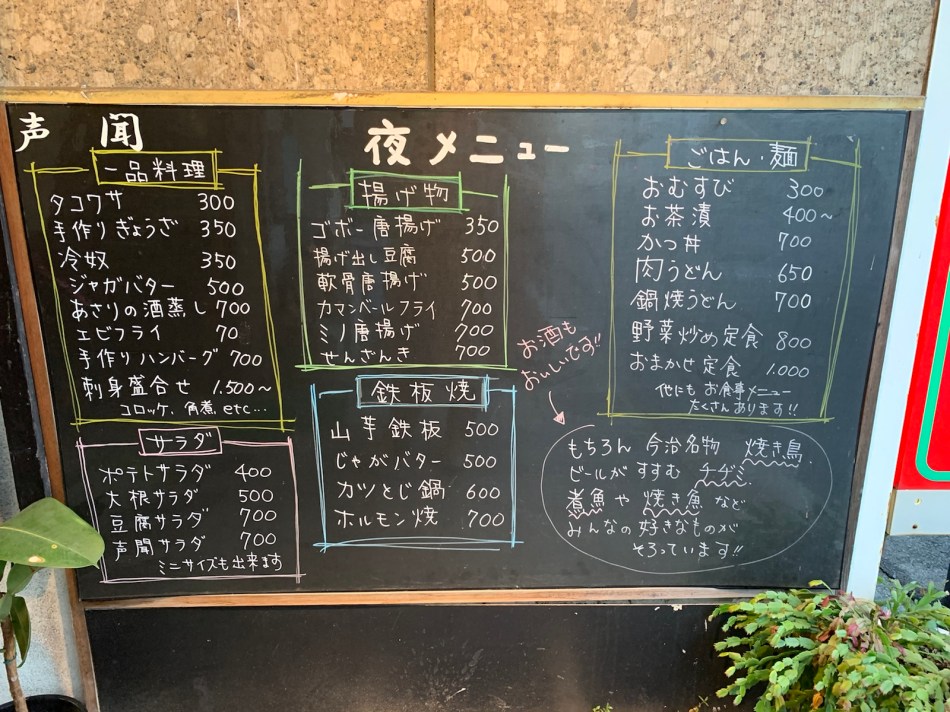 声 聞
夜メニュー
一品料理
タコワサ 300
手作りぎょうざ 350
冷奴 350
ジャガバター 500
あさりの酒蒸し 700
エビフライ 70
手作りハンバーグ 700
刺身盛合せ 1.500~
コロッケ、角煮、etc…
サラダ
ポテトサラダ 400
大根サラダ 500
豆腐サラダ 700
声聞サラダ 700
ミニサイズも出来ます
揚げ物
ゴボー唐揚げ 350
揚げ出し豆腐 500
軟骨唐揚げ 500
カマンベールフライ 700
ミノ唐揚げ 700
せんざんき 700
鉄板焼
山芋鉄板 500
じゃがバター 500
カツとじ鍋 600
ホルモン焼 700
ごはん・麺
おむすび 300
お茶漬 400~
かつ丼 700
肉うどん 650
鍋焼うどん 700
野菜炒め定食 800
おまかせ定食 1.000
他にもお食事メニュー
たくさんあります!!
お酒も
おいしいです!!
もちろん 今治名物 焼き鳥
ビールがすすむ チヂミ
煮魚や焼き魚など
みんなの好きなものが
そろっています!!